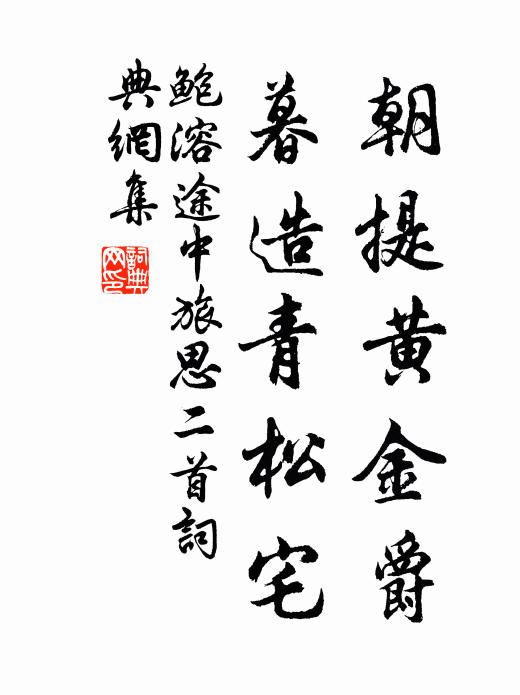 朝提黃金爵
暮造青松宅
鮑溶途中旅思二首詞
典網集
詞典
网印